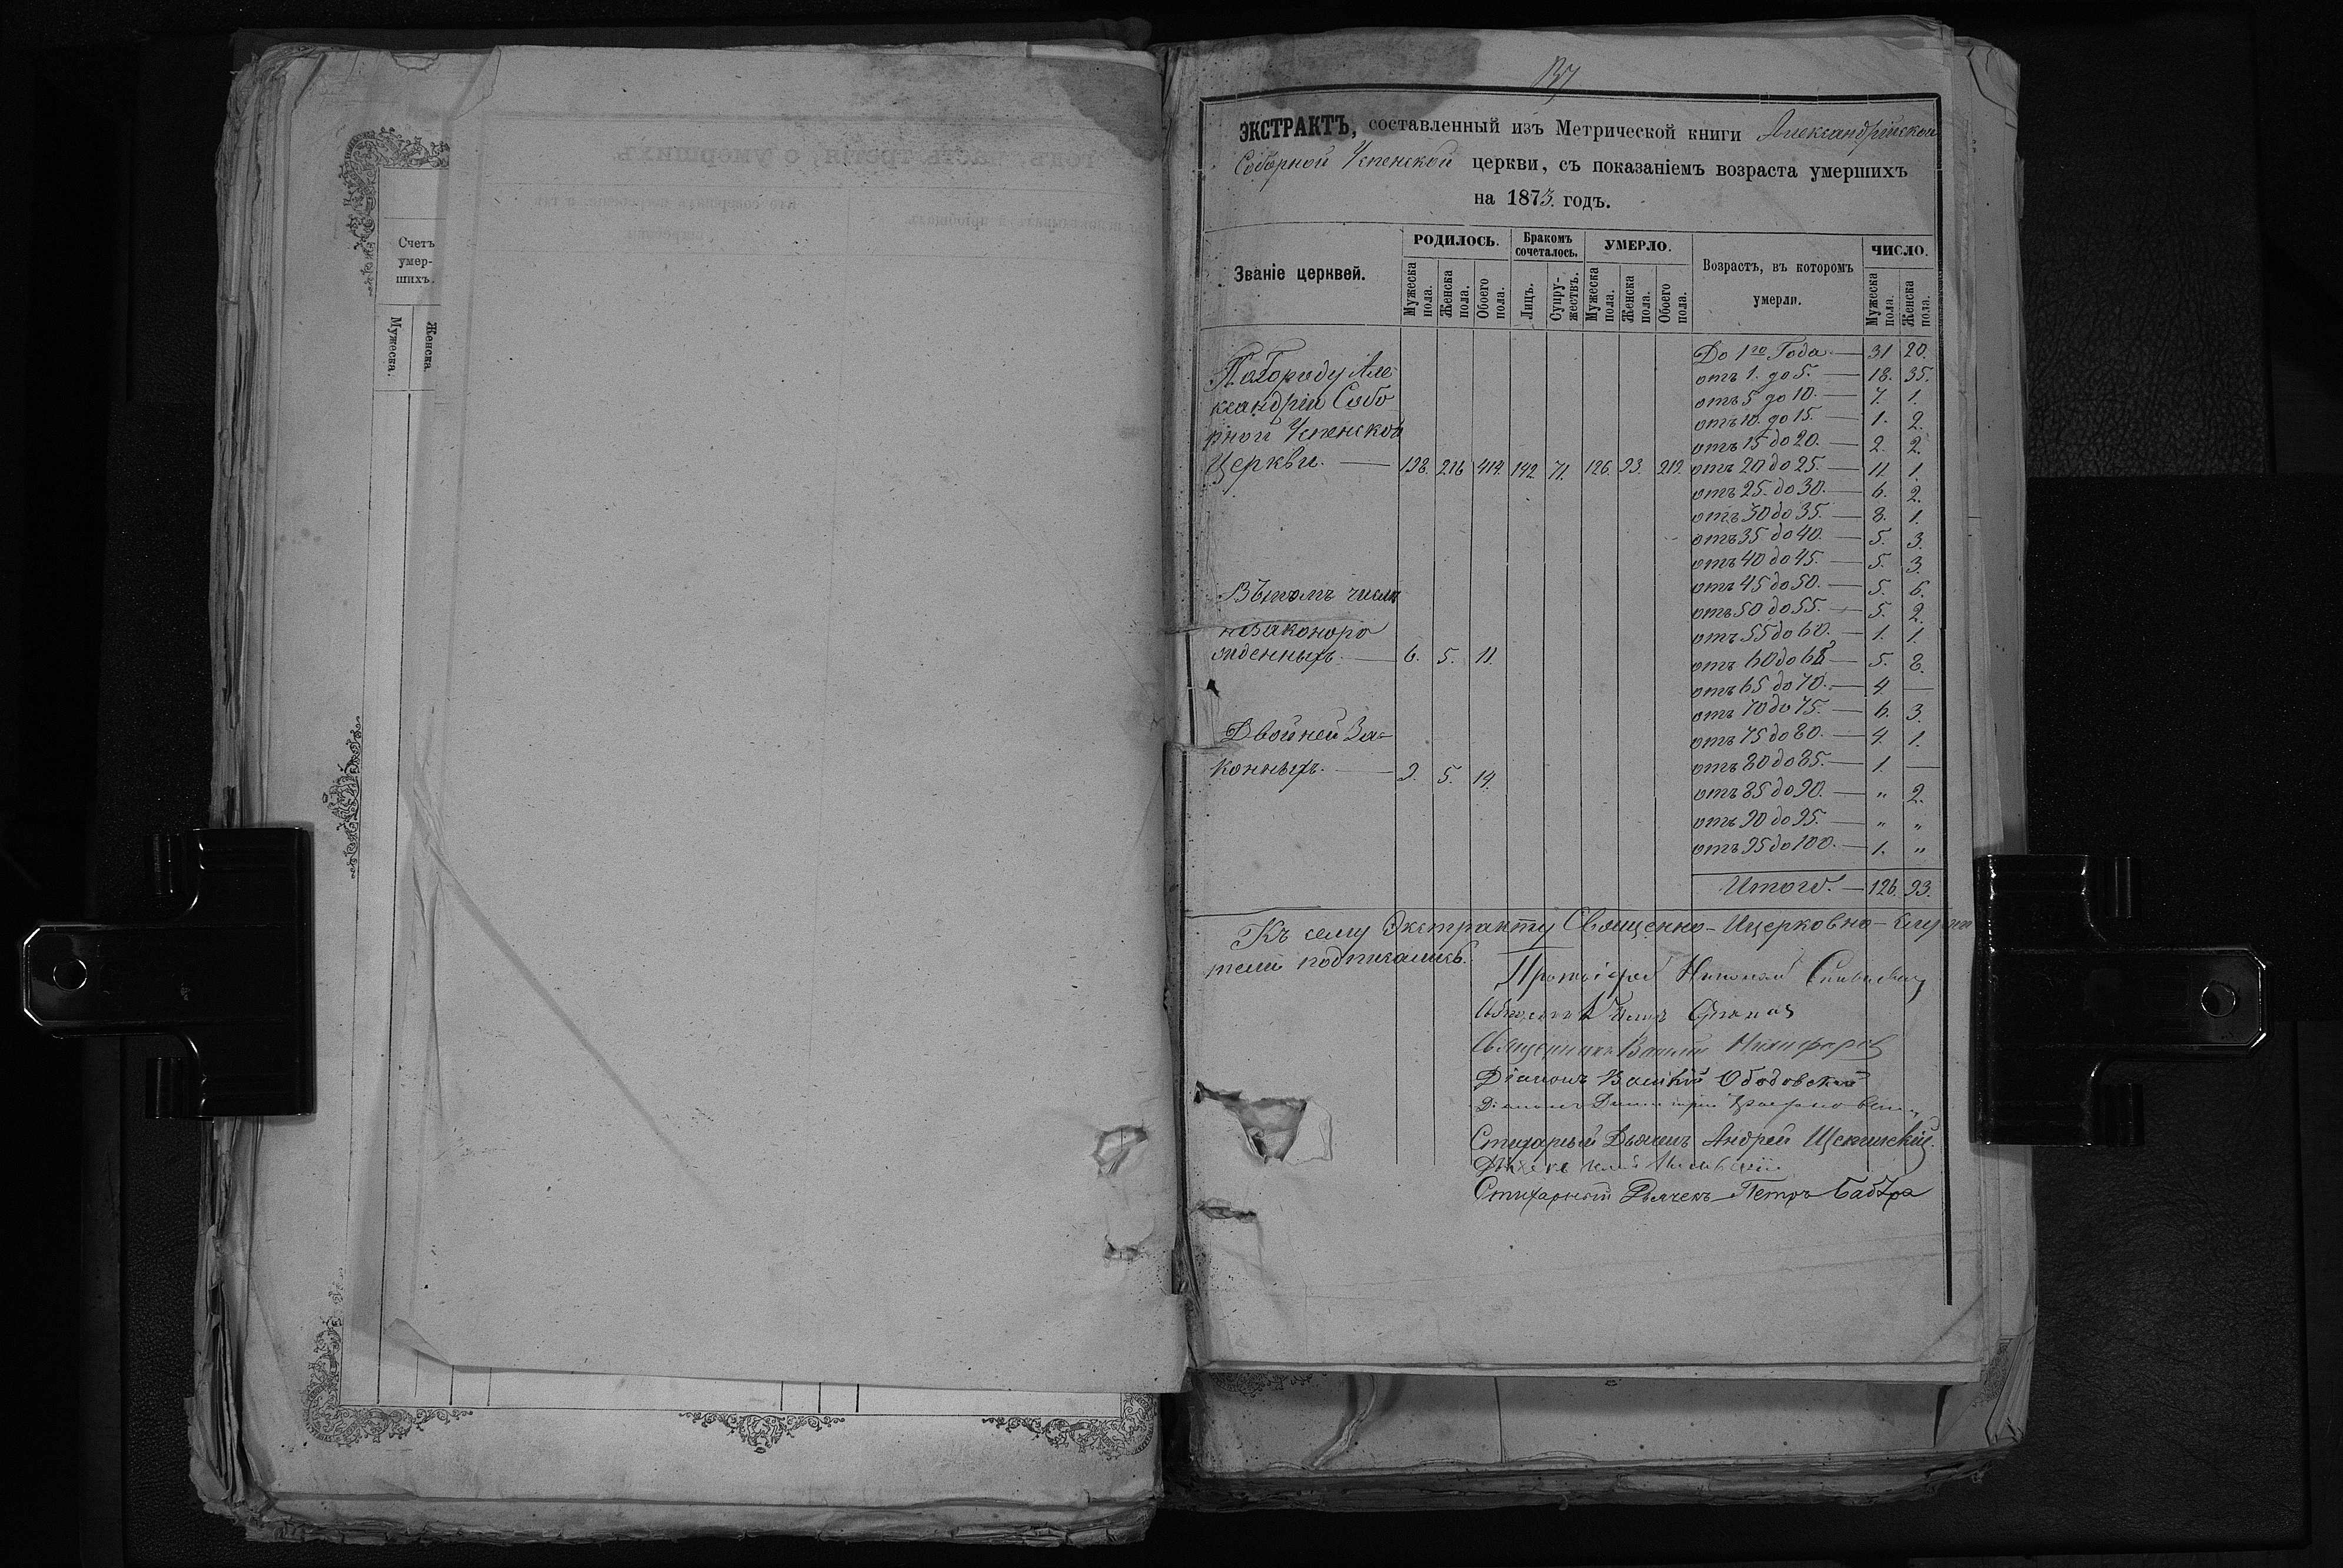 Счетъ
умер-
шихъ.
Мужеска.
Женска.
137
ЭКСТРАКТЪ, составленный изъ Метрической книги Александрійской
Соборной Успенской церкви, съ показаніемъ возраста умершихъ
на 1873. годъ.
Званіе церквей.
РОДИЛОСЬ.
Бракомъ сочеталось.
УМЕРЛО.
Возрастъ, въ которомъ умерли.
ЧИСЛО.
Мужеска пола.
Женска пола.
Обоего пола.
Лицъ.
Супру-жествъ.
Мужеска пола.
Женска пола.
Обоего пола.
Мужеска пола.
Женска пола.
По Городу Але
ксандріи Собо
рной Успенской
Церкви. — 198. 216. 414. 142. 71. 126. 93. 219.
Въ томъ числѣ
незаконоро
жденныхъ. — 6. 5. 11.
Двойней За-
конныхъ. — 9. 5. 14.
До 1го Года — 31 20.
отъ 1. до 5. — 18. 35.
отъ 5 до 10. — 7. 1.
отъ 10. до 15. — 1. 2.
отъ 15 до 20. — 2. 2.
отъ 20 до 25. — 11. 1.
отъ 25. до 30. — 6. 2.
отъ 30 до 35. — 8. 1.
отъ 35 до 40. — 5. 3.
отъ 40 до 45. — 5. 3.
отъ 45 до 50. — 5. 6.
отъ 50 до 55. — 5. 2.
отъ 55 до 60. — 1. 1.
отъ 60 до 65 — 5. 8.
отъ 65 до 70. — 4. —
отъ 70 до 75. — 6. 3.
отъ 75 до 80. — 4. 1.
отъ 80 до 85. — 1. —
отъ 85 до 90. — " 2.
отъ 90 до 95. — " "
отъ 95 до 100. — 1. "
Итого. — 126. 93.
Къ сему Экстракту Священно-Ицерковно-служи
тели подписались.
Протоіерей Николай
Священникъ
Священникъ Василій Никифоровъ
Діаконъ Василій Ободовскій
Діаконъ Димитрій
Стихарный Дьячекъ Андрей Щепинскій.
Стихарный Дьячекъ Петръ Бабура